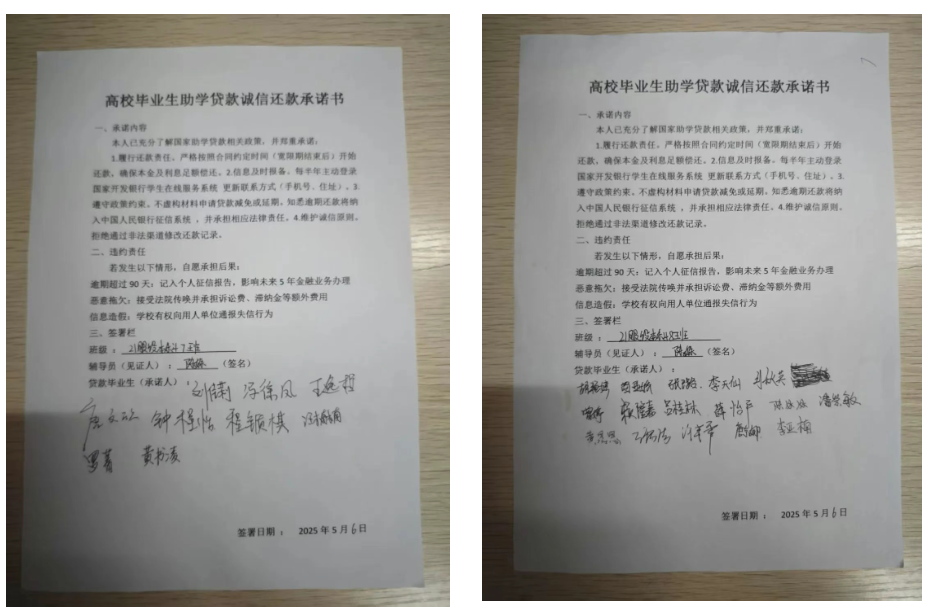 高校毕业生助学贷款诚信还款承诺书
一、承诺内容
本人已充分了解国家助学贷款相关政策，并郑重承诺：
1.履行还款责任，严格按照合同约定时间（宽限期结束后）开始
还款，确保本金及利息足额偿还。2.信息及时报备，每半年主动登录
国家开发银行学生在线服务系统 更新联系方式（手机号、住址）。3.
遵守政策约束，不虚构材料申请贷款减免或延期，知悉逾期还款将纳
入中国人民银行征信系统 ，并承担相应法律责任。4.维护诚信原则，
拒绝通过非法渠道修改还款记录。
二、违约责任
若发生以下情形，自愿承担后果：
逾期超过 90 天：记入个人征信报告，影响未来 5 年金融业务办理
恶意拖欠：接受法院传唤并承担诉讼费、滞纳金等额外费用
信息造假：学校有权向用人单位通报失信行为
三、签署栏
班级：
辅导员（见证人）： （签名）
贷款毕业生（承诺人）：
黄书凌
签署日期： 2025 年 5 月 6 日
高校毕业生助学贷款诚信还款承诺书
一、承诺内容
本人已充分了解国家助学贷款相关政策，并郑重承诺：
1.履行还款责任，严格按照合同约定时间（宽限期结束后）开始
还款，确保本金及利息足额偿还。2.信息及时报备，每半年主动登录
国家开发银行学生在线服务系统 更新联系方式（手机号、住址）。3.
遵守政策约束，不虚构材料申请贷款减免或延期，知悉逾期还款将纳
入中国人民银行征信系统 ，并承担相应法律责任。4.维护诚信原则，
拒绝通过非法渠道修改还款记录。
二、违约责任
若发生以下情形，自愿承担后果：
逾期超过 90 天：记入个人征信报告，影响未来 5 年金融业务办理
恶意拖欠：接受法院传唤并承担诉讼费、滞纳金等额外费用
信息造假：学校有权向用人单位通报失信行为
三、签署栏
班级：
辅导员（见证人）： （签名）
贷款毕业生（承诺人）：
李天仙
潘崇敏
签署日期： 2025 年 5 月 6 日